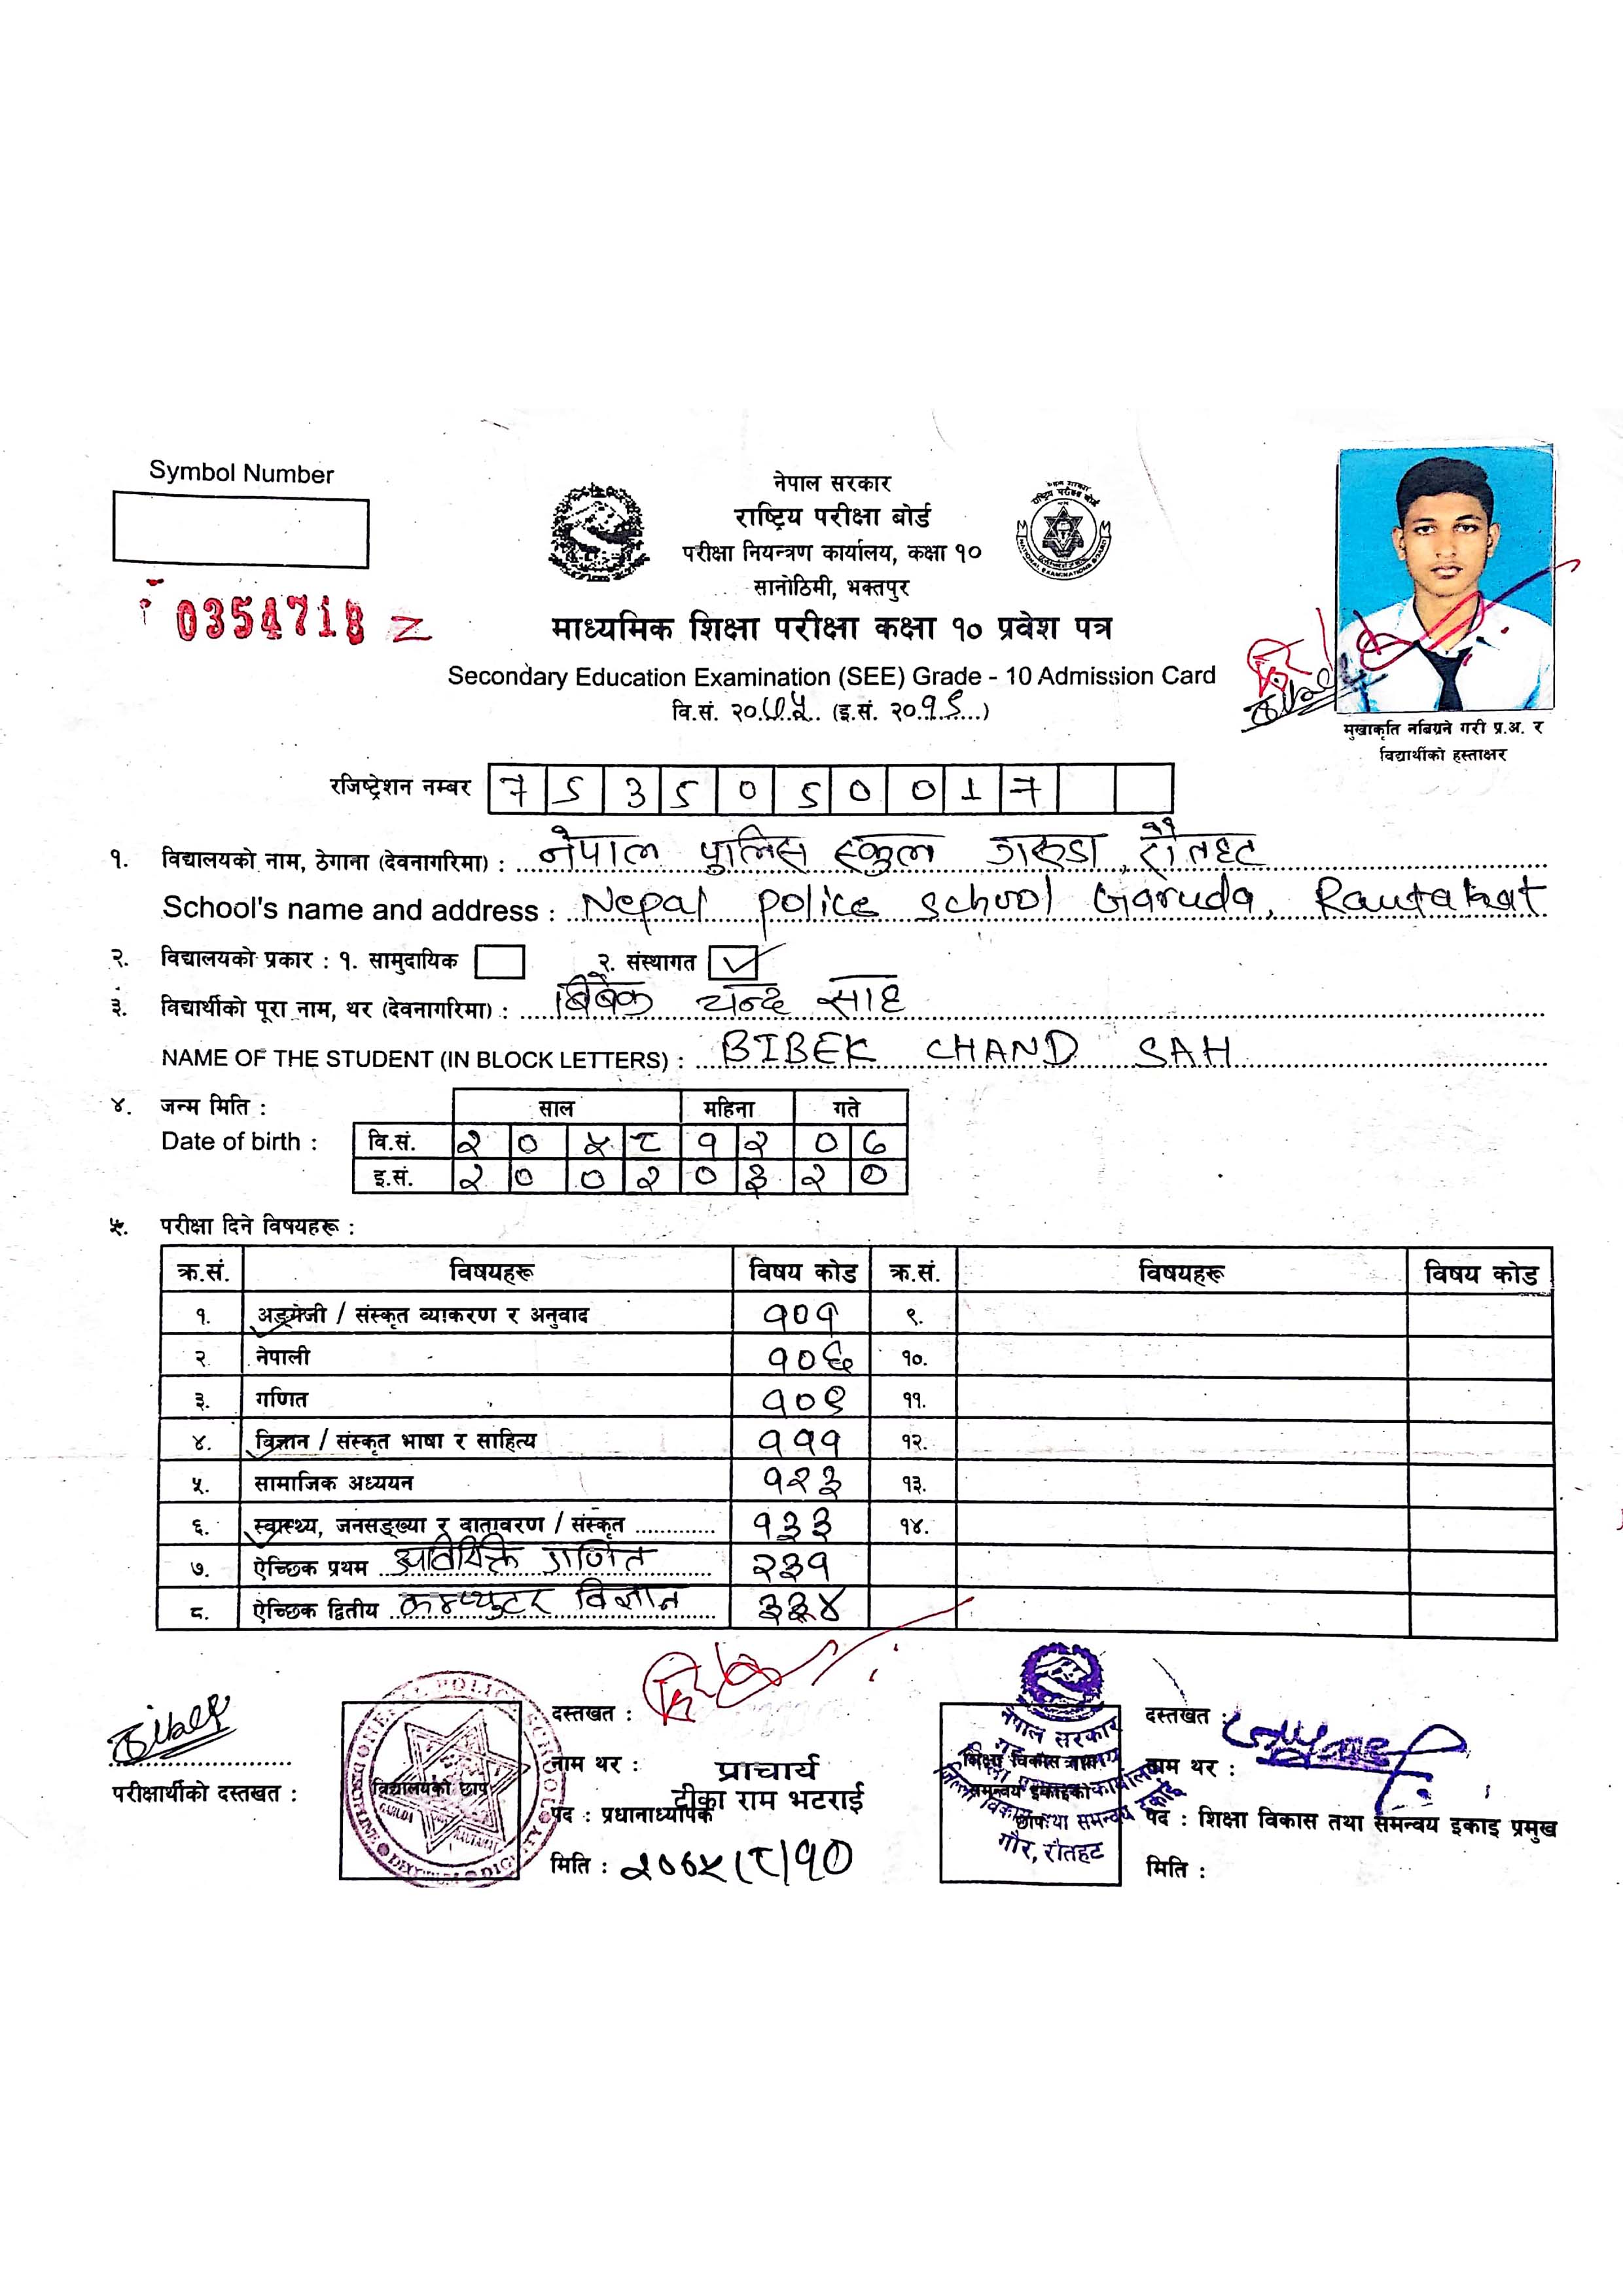 Symbol Number
0354718 Z
नेपाल सरकार
राष्ट्रिय परीक्षा बोर्ड
परीक्षा नियन्त्रण कार्यालय, कक्षा १०
सानोठिमी, भक्तपुर
माध्यमिक शिक्षा परीक्षा कक्षा १० प्रवेश पत्र
Secondary Education Examination (SEE) Grade - 10 Admission Card
वि.सं. २०७५ (इ.सं. २०१९)
मुखाकृति नबिग्रने गरी प्र.अ. र
विद्यार्थीको हस्ताक्षर
रजिष्ट्रेशन नम्बर 7 5 3 5 0 5 0 0 1 7
१. विद्यालयको नाम, ठेगाना (देवनागरिमा) : नेपाल पुलिस स्कुल गरुडा, रौतहट
School's name and address : Nepal police school Garuda, Rautahat
२. विद्यालयको प्रकार : १. सामुदायिक २. संस्थागत ✓
३. विद्यार्थीको पूरा नाम, थर (देवनागरिमा) : बिबेक चन्द साह
NAME OF THE STUDENT (IN BLOCK LETTERS) : BIBEK CHAND SAH
४. जन्म मिति : साल महिना गते
Date of birth : वि.सं. २ ० ५ ८ १ २ ० ७
इ.सं. २ ० ० २ ० ३ २ ०
५. परीक्षा दिने विषयहरू :
क्र.सं. विषयहरू विषय कोड क्र.सं. विषयहरू विषय कोड
१. अङ्ग्रेजी / संस्कृत व्याकरण र अनुवाद १०१ ९.
२. नेपाली १०६ १०.
३. गणित १०९ ११.
४. विज्ञान / संस्कृत भाषा र साहित्य १११ १२.
५. सामाजिक अध्ययन १२३ १३.
६. स्वास्थ्य, जनसङ्ख्या र वातावरण / संस्कृत १३३ १४.
७. ऐच्छिक प्रथम गणित २३१
८. ऐच्छिक द्वितीय कम्प्युटर विज्ञान ३३४
परीक्षार्थीको दस्तखत :
विद्यालयको छाप
दस्तखत :
नाम थर : प्राचार्य
टीका राम भटराई
पद : प्रधानाध्यापक
मिति : २०७५/८/१०
नेपाल सरकार
शिक्षा विकास तथा
समन्वय इकाईको
छाप
गौर, रौतहट
दस्तखत :
नाम थर :
पद : शिक्षा विकास तथा समन्वय इकाइ प्रमुख
मिति :